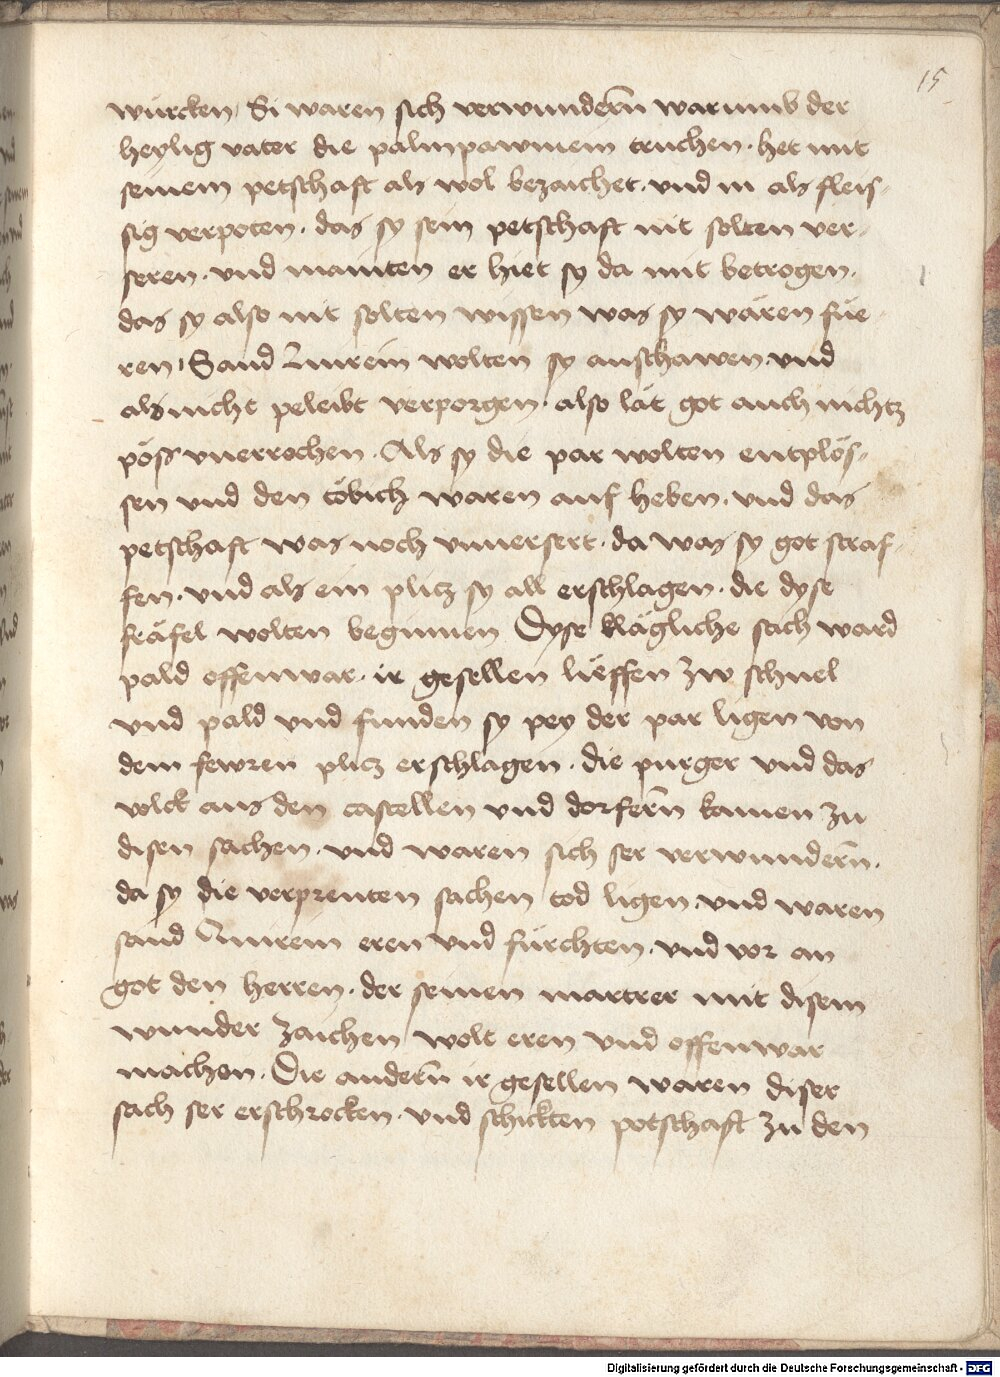 15
würcken, Si waren sich verwundern̄ warumb der
heylig vater die palmpawmem truchen · het mit
seinem petschaft als wol bezaichet · vnd in als fleis-
sig verpoten · das sy sein petschaft nit solten ver-
seren · vnd mainten er hiet sy da mit betrogen ·
das sy also nit solten wissen was sy wären füe-
ren, Sand Quirein wolten sy anschawen vnd
als nicht peleibt verporgen · also lät got auch nichtz
pöss vnerrochen · Als sy die par wolten entplös-
sen vnd den töbich waren auf heben · vnd das
petschaft was noch vnuersert · da was sy got straf-
fen · vnd als ein plicz sy all erschlagen · die dyse
fräfel wolten begunnen Dyse klägliche sach ward
pald offenwar · ir gesellen lieffen zw schnel
vnd pald vnd funden sy pey der par ligen von
dem fewren plicz erschlagen · die purger vnd das
volck aus den castellen vnd dorfern̄ kamen zu
disen sachen · vnd waren sich ser verwundern̄ ·
da sy die verprenten sachen tod ligen · vnd waren
sand Quirein eren vnd fürchten · vnd vor an
got den herren · der seinen martrer mit disem
wunder zaichen wolt eren vnd offenwar
machen · Die andern̄ ir gesellen waren diser
sach ser erschrocken · vnd schickten potschaft zu den
Digitalisierung gefördert durch die Deutsche Forschungsgemeinschaft - DFG